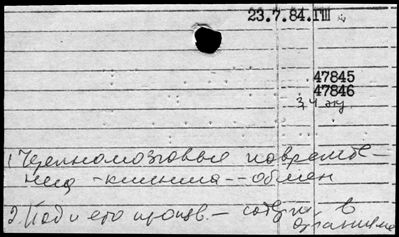 23.7.84.ГШ
47845
47846
3,4 эк
1 Черепномозговые поврежде-
ния - клиника -- обмен
2) Йод и его произв. - содерж. в
организме